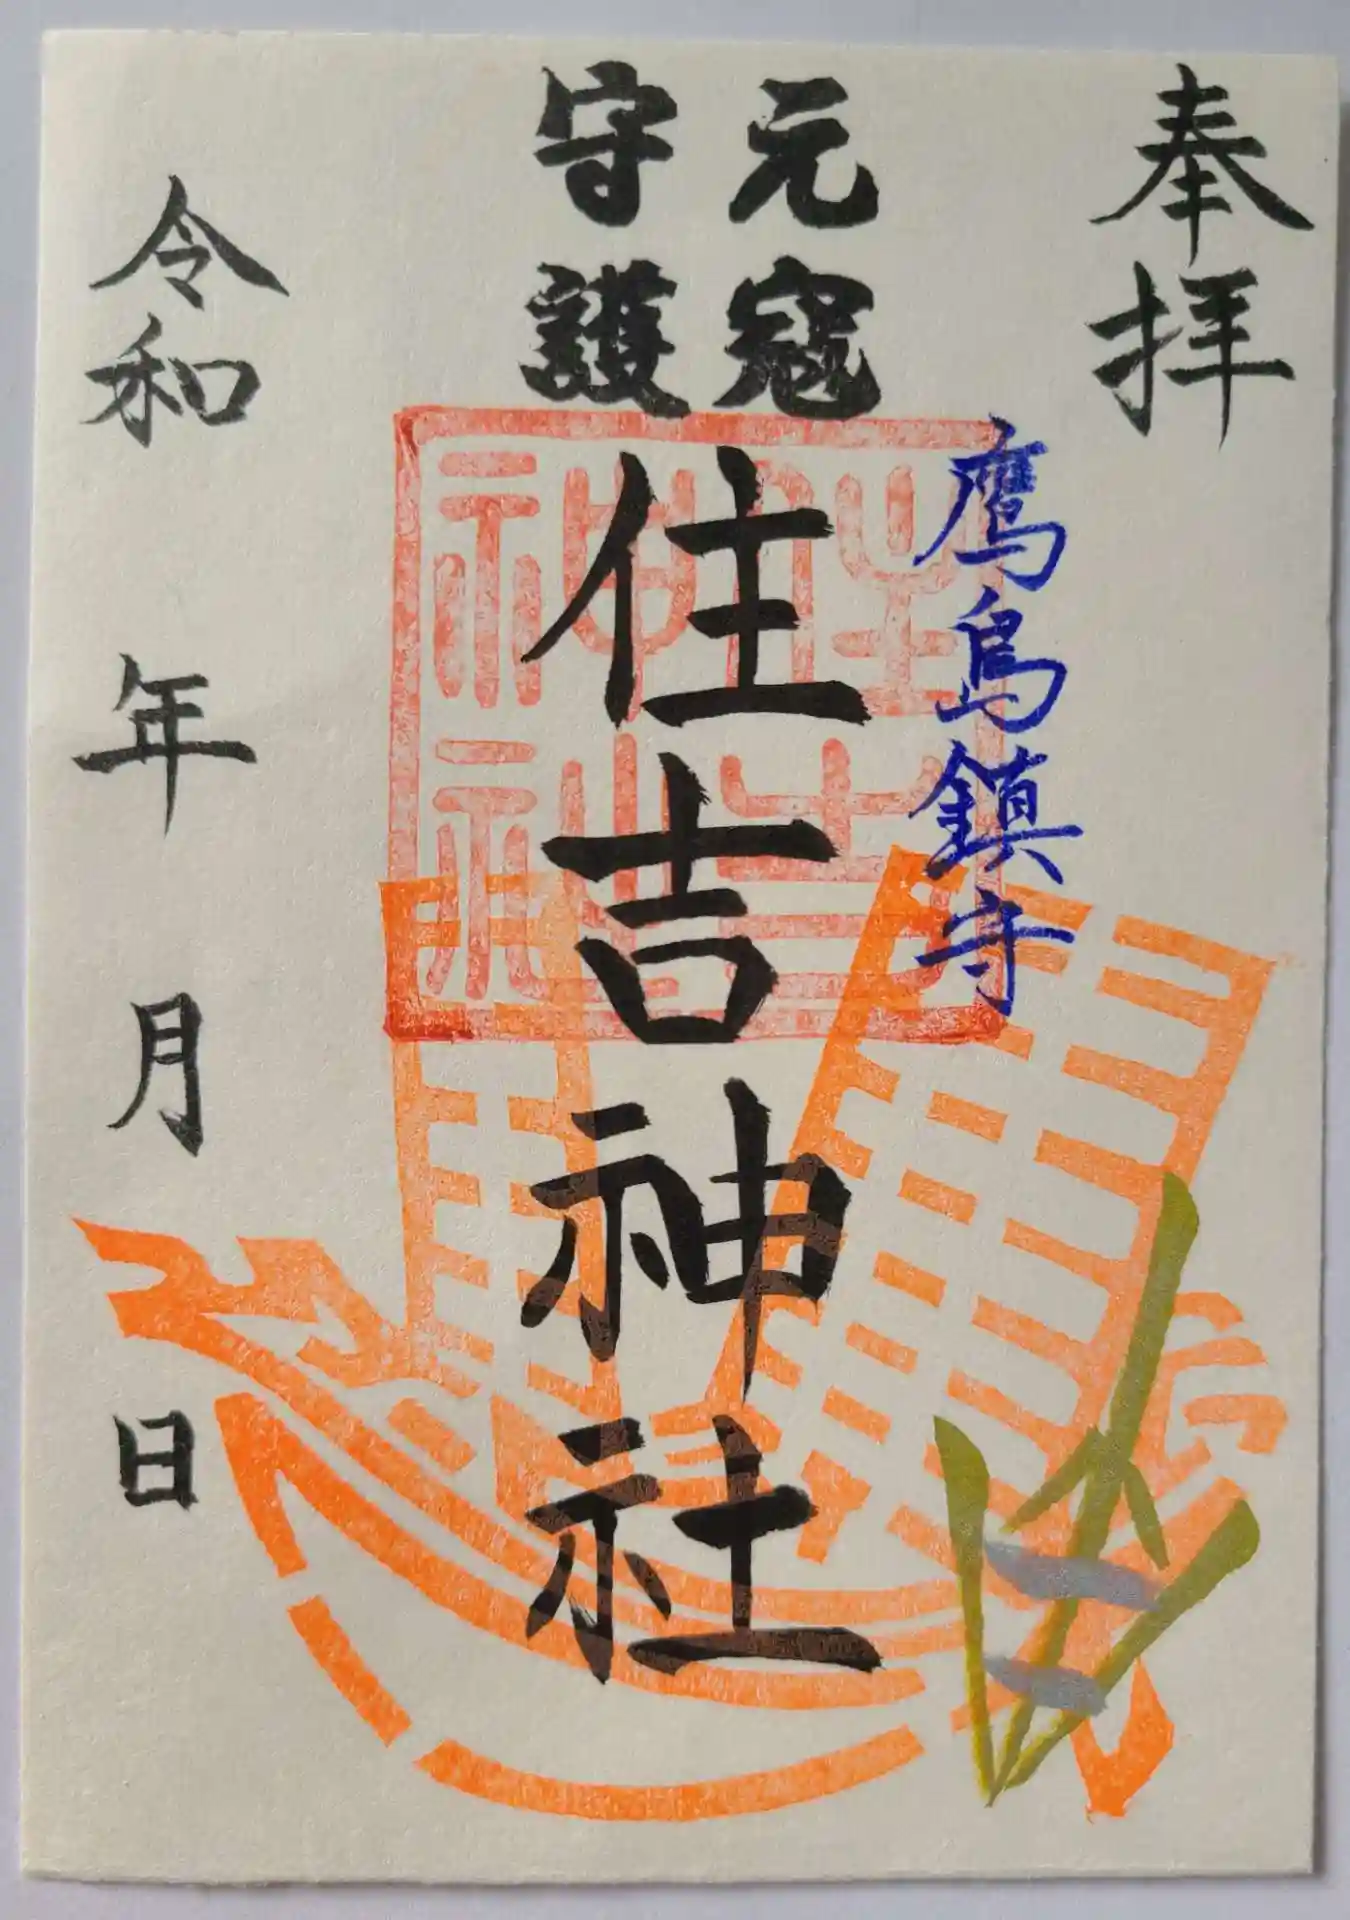 奉拝
鷹島鎮守
元寇
守護
住吉神社
住吉
神社
令和 年 月 日